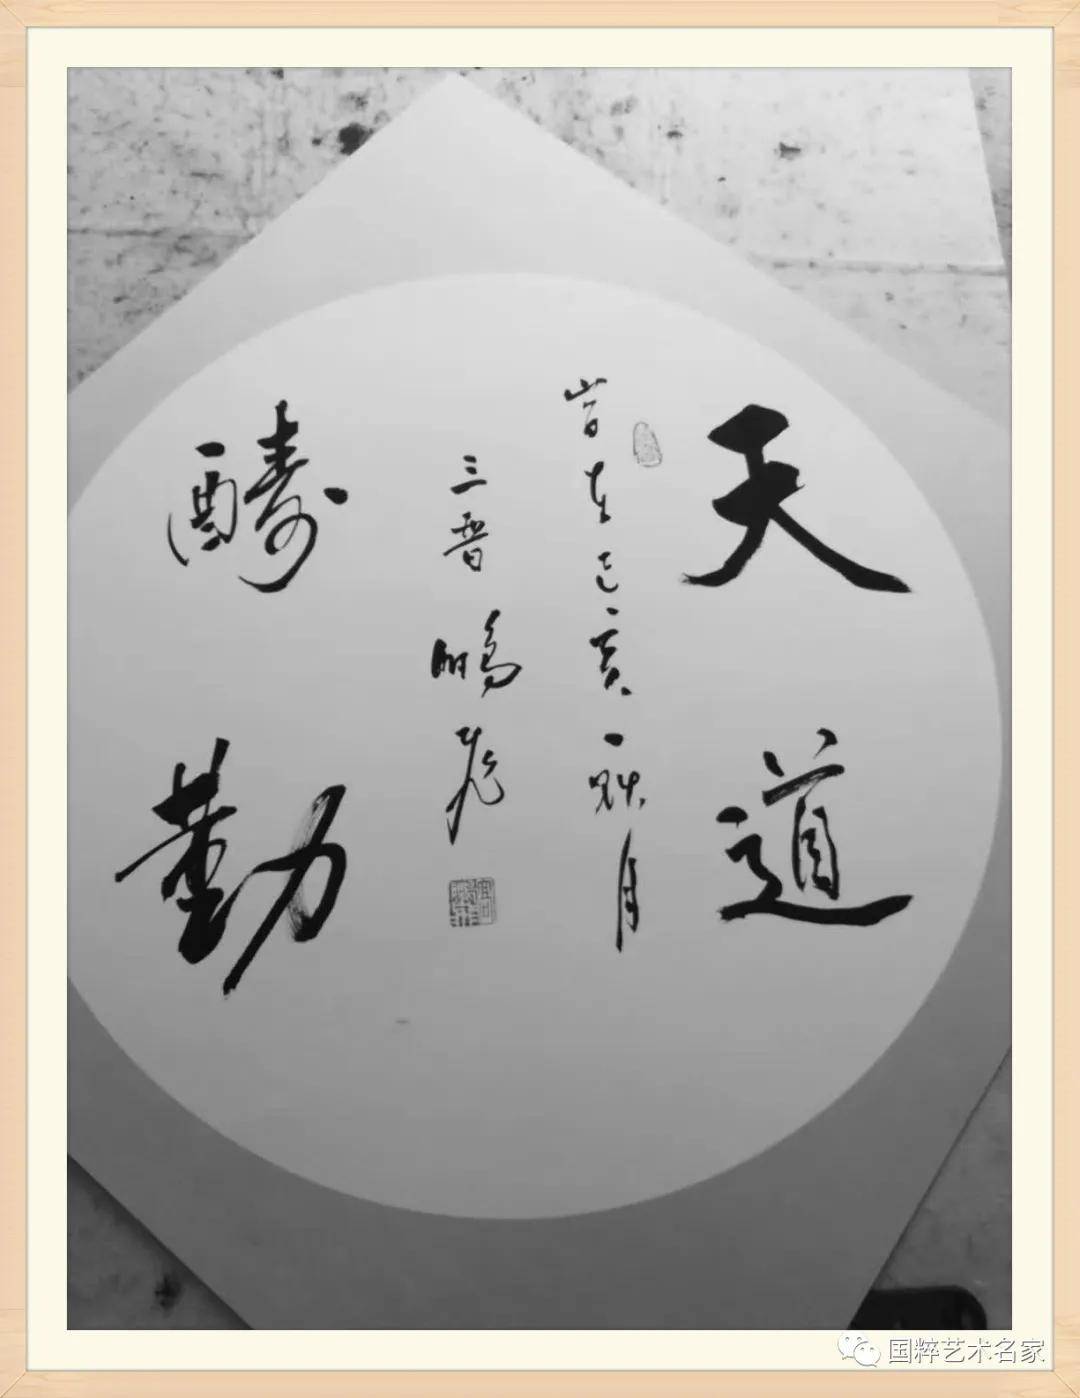 天道
時在己亥秋月
三晋鵬飛
醻勤
国粹艺术名家